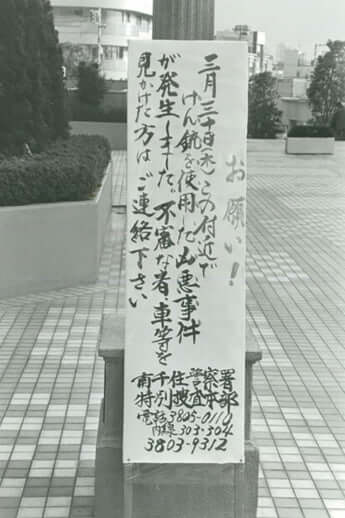 お願い!
三月三十日(木)この付近で
けん銃を使用した凶悪事件
が発生しました。不審な者、車等を
見かけた方はご連絡下さい
南千住警察署
特別捜査本部
電話 3805-0110
内線 303-304
3803-9312